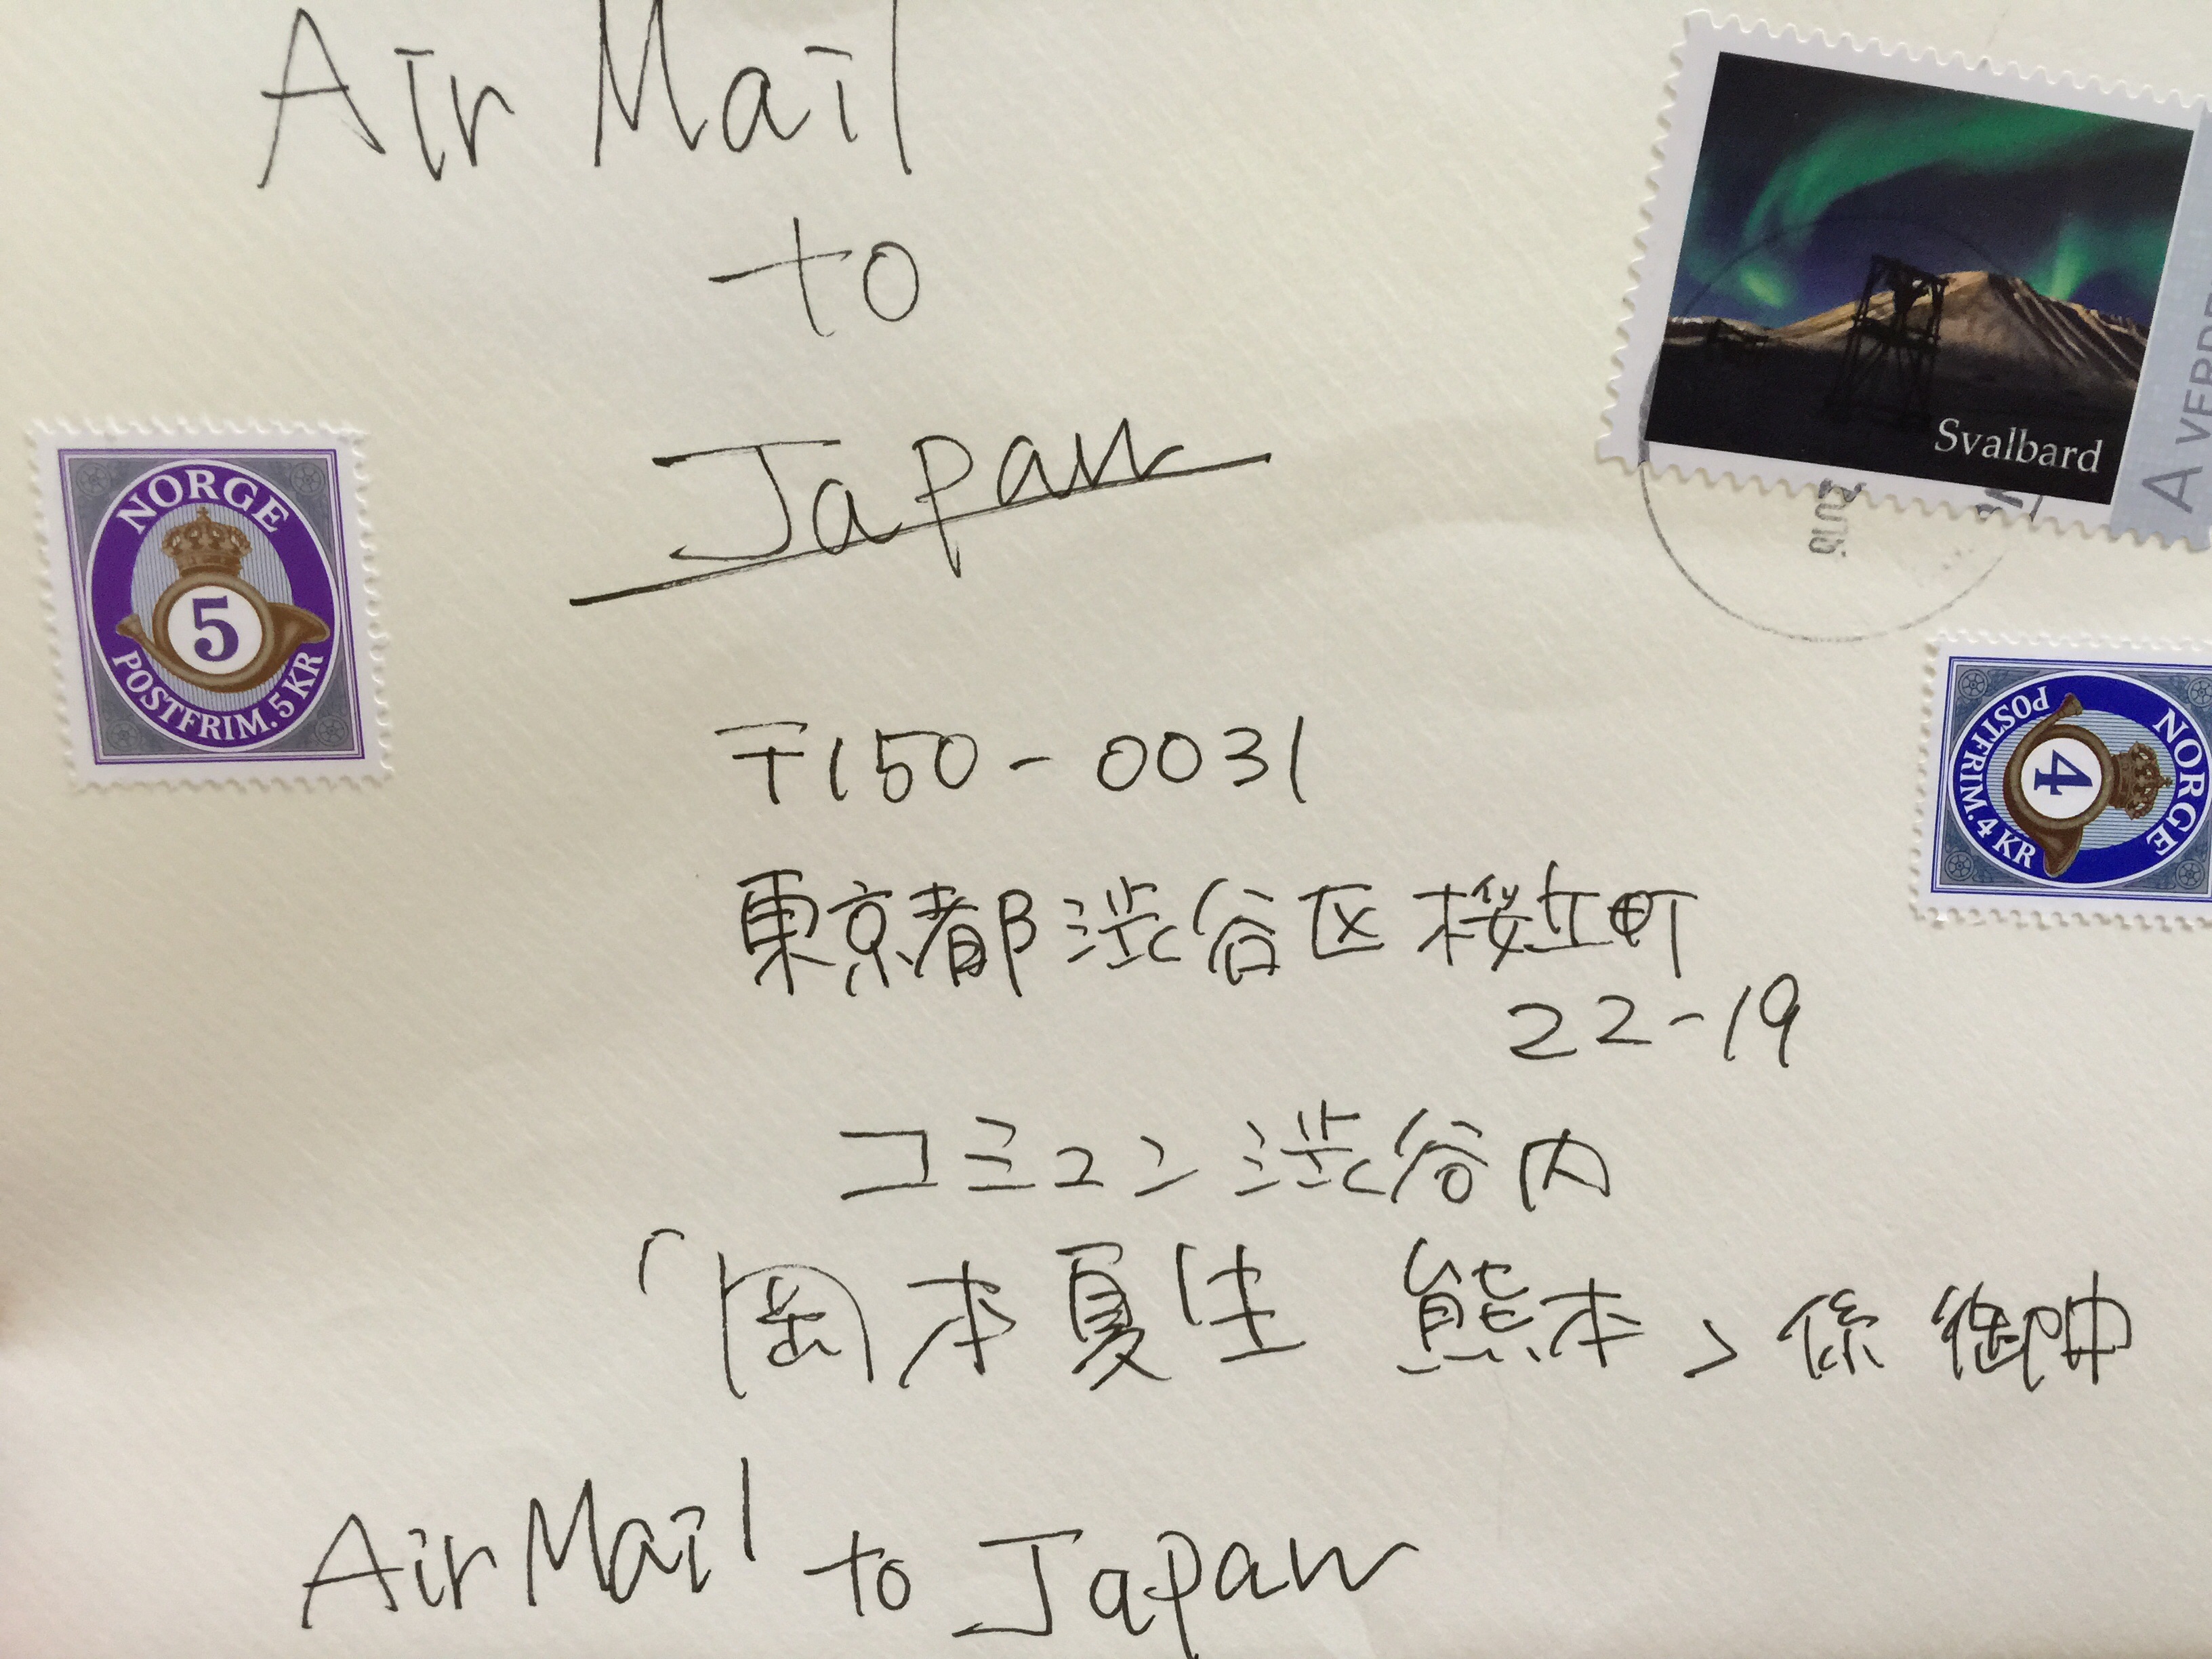 Air Mail
to
Japan
Svalbard
A VERDE
2016
NORGE
5
POSTFRIM. 5 KR
NORGE
4
POSTFRIM. 4 KR
〒150-0031
東京都渋谷区桜丘町
22-19
コミュン渋谷内
「岡本夏生 熊本」係 御中
Air Mail to Japan